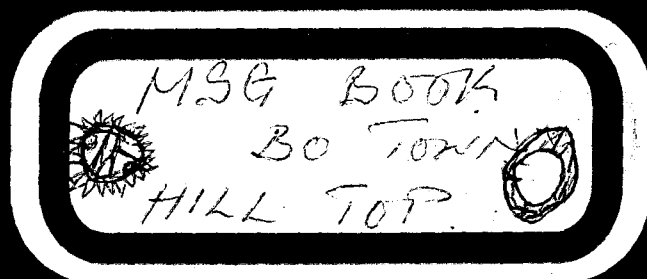 MSG BOOK
BO TOWN
HILL TOP.